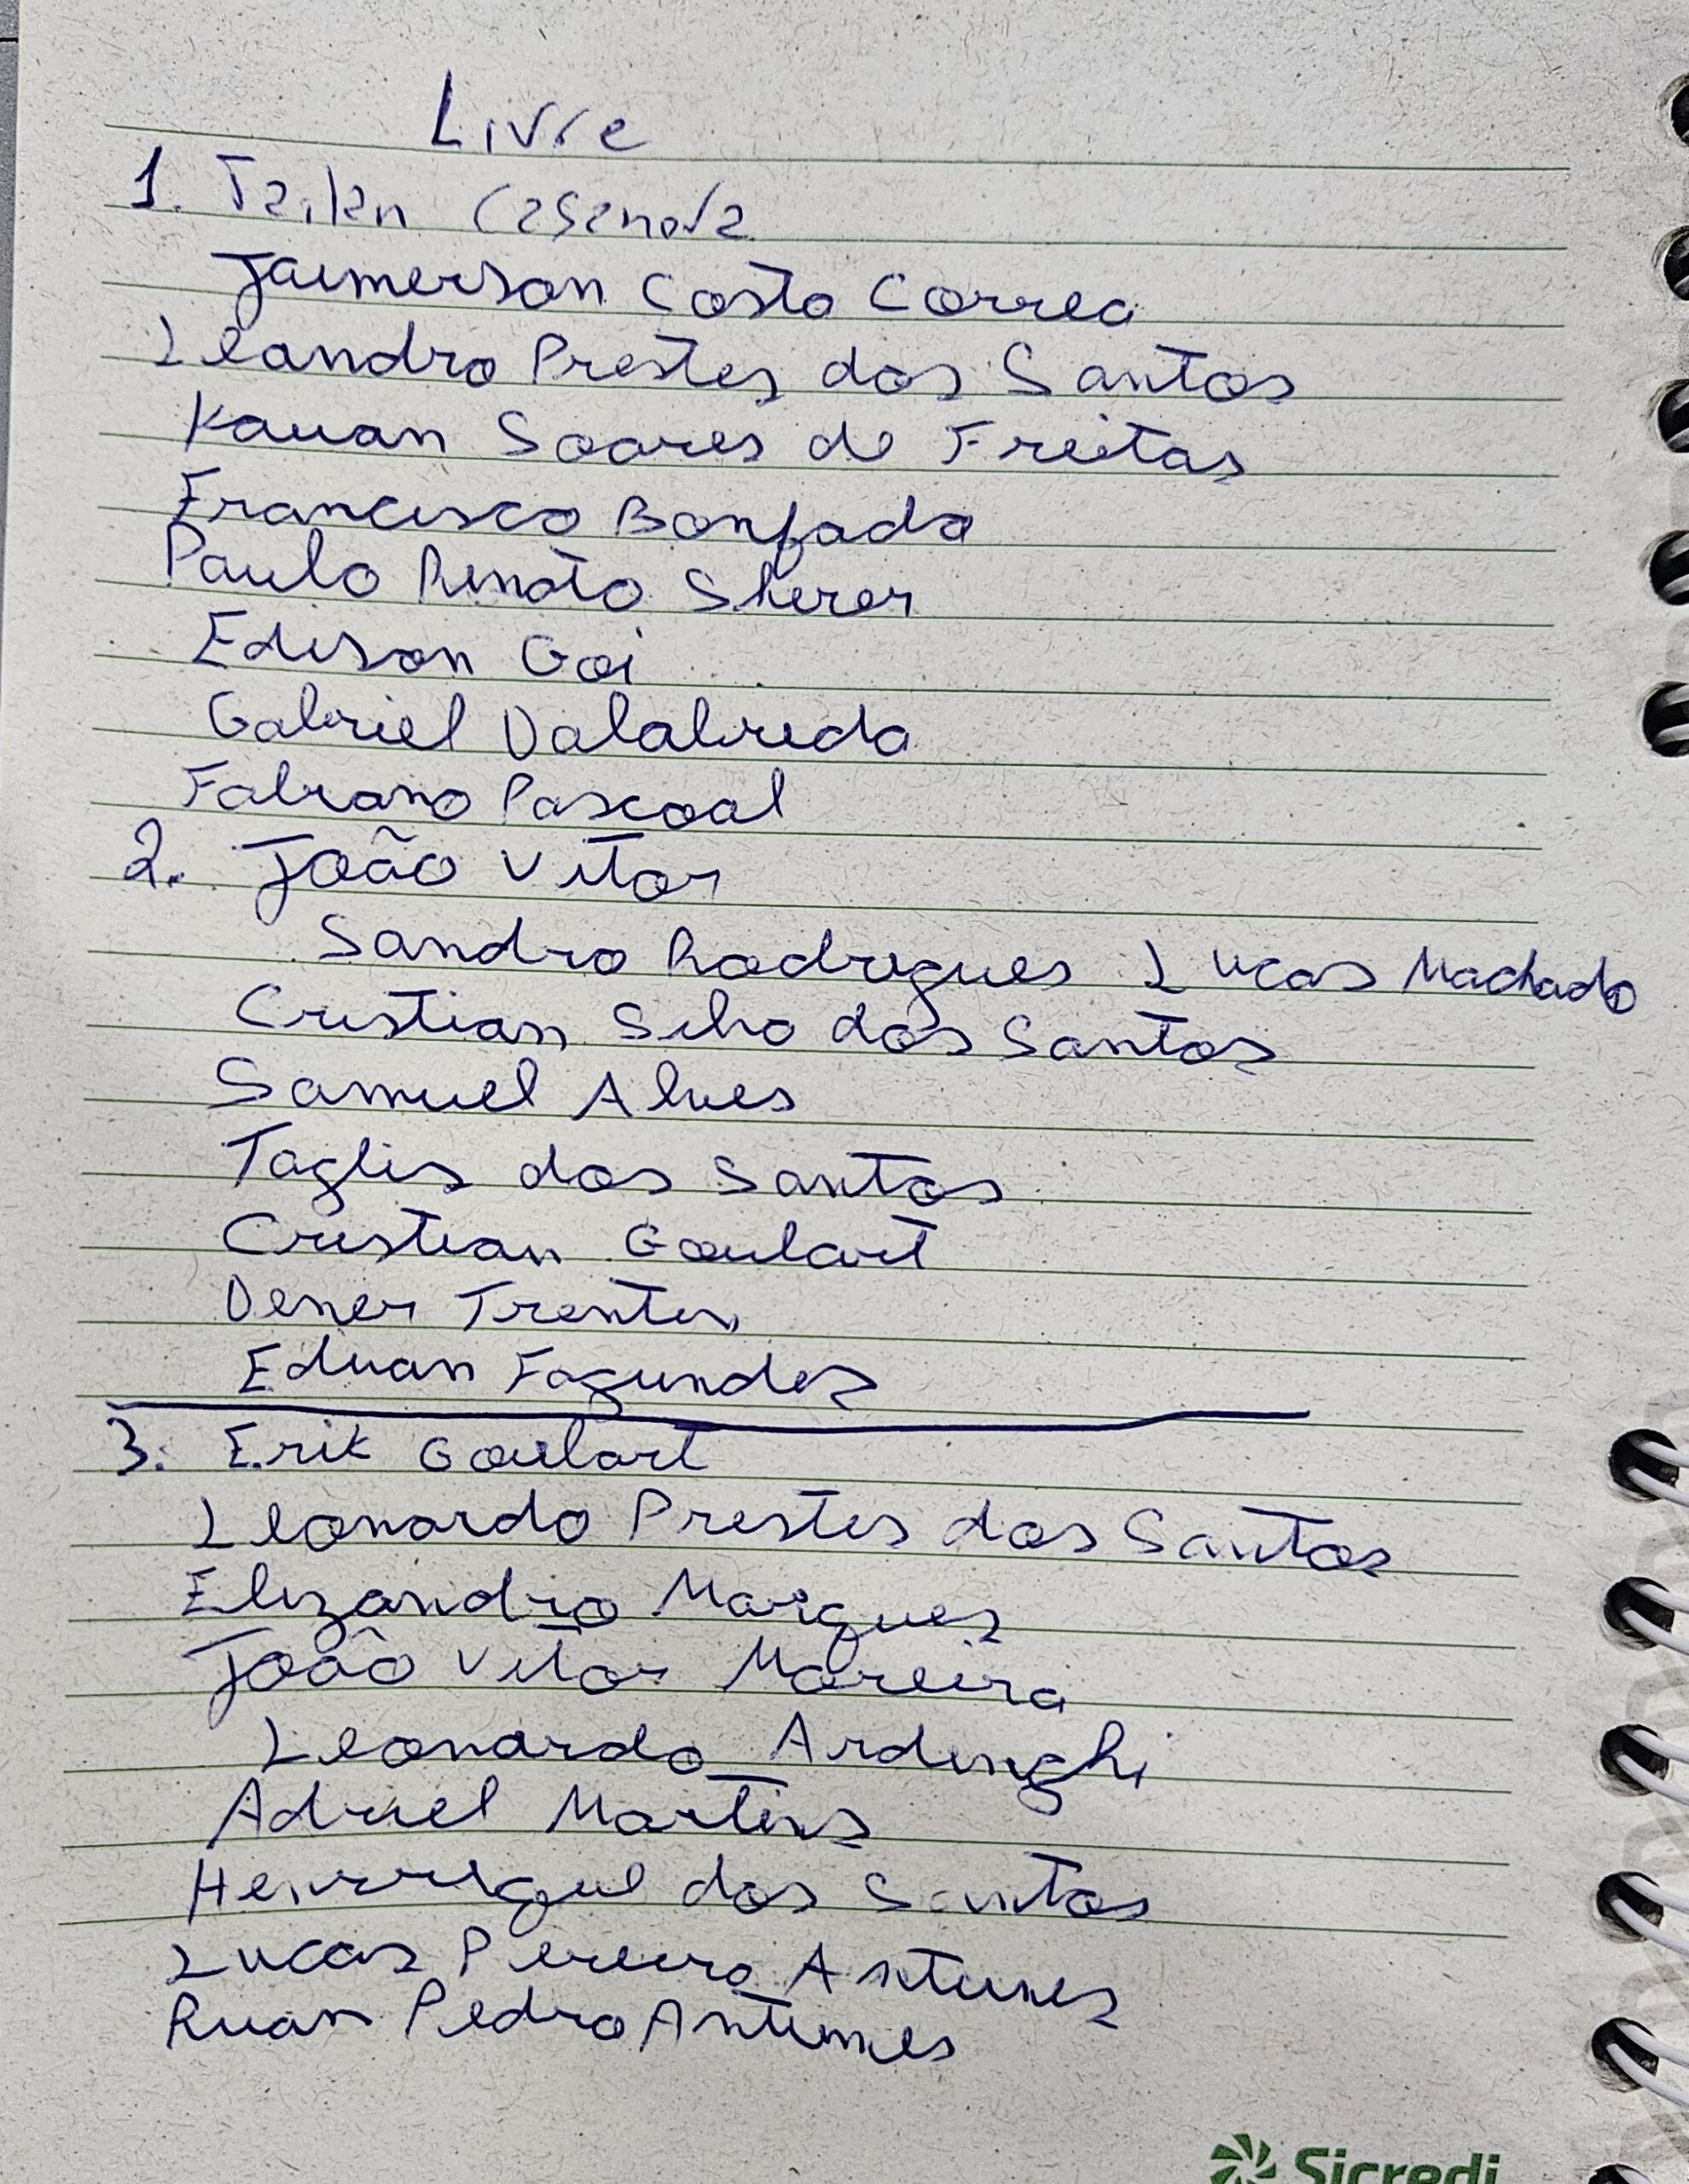 Livre
1. Taikn Casanova
Jaimerson Costa Correa
Leandro Prestes dos Santos
Kauan Soares de Freitas
Francisco Bonfada
Paulo Renato Sherer
Edison Goi
Gabriel Dalabrida
Fabiano Pascoal
2. João Vitor
Sandro Rodrigues Lucas Machado
Cristian Silva dos Santos
Samuel Alves
Taglis dos Santos
Cristian Goulart
Dener Trentin
Eduan Fagundes
3. Erik Goulart
Leonardo Prestes dos Santos
Elizandro Marques
João Vitor Moreira
Leonardo Ardenghi
Adriel Martins
Henrrique dos Santos
Lucas Pereira Antunes
Ruan Pedro Antunes
Sicredi